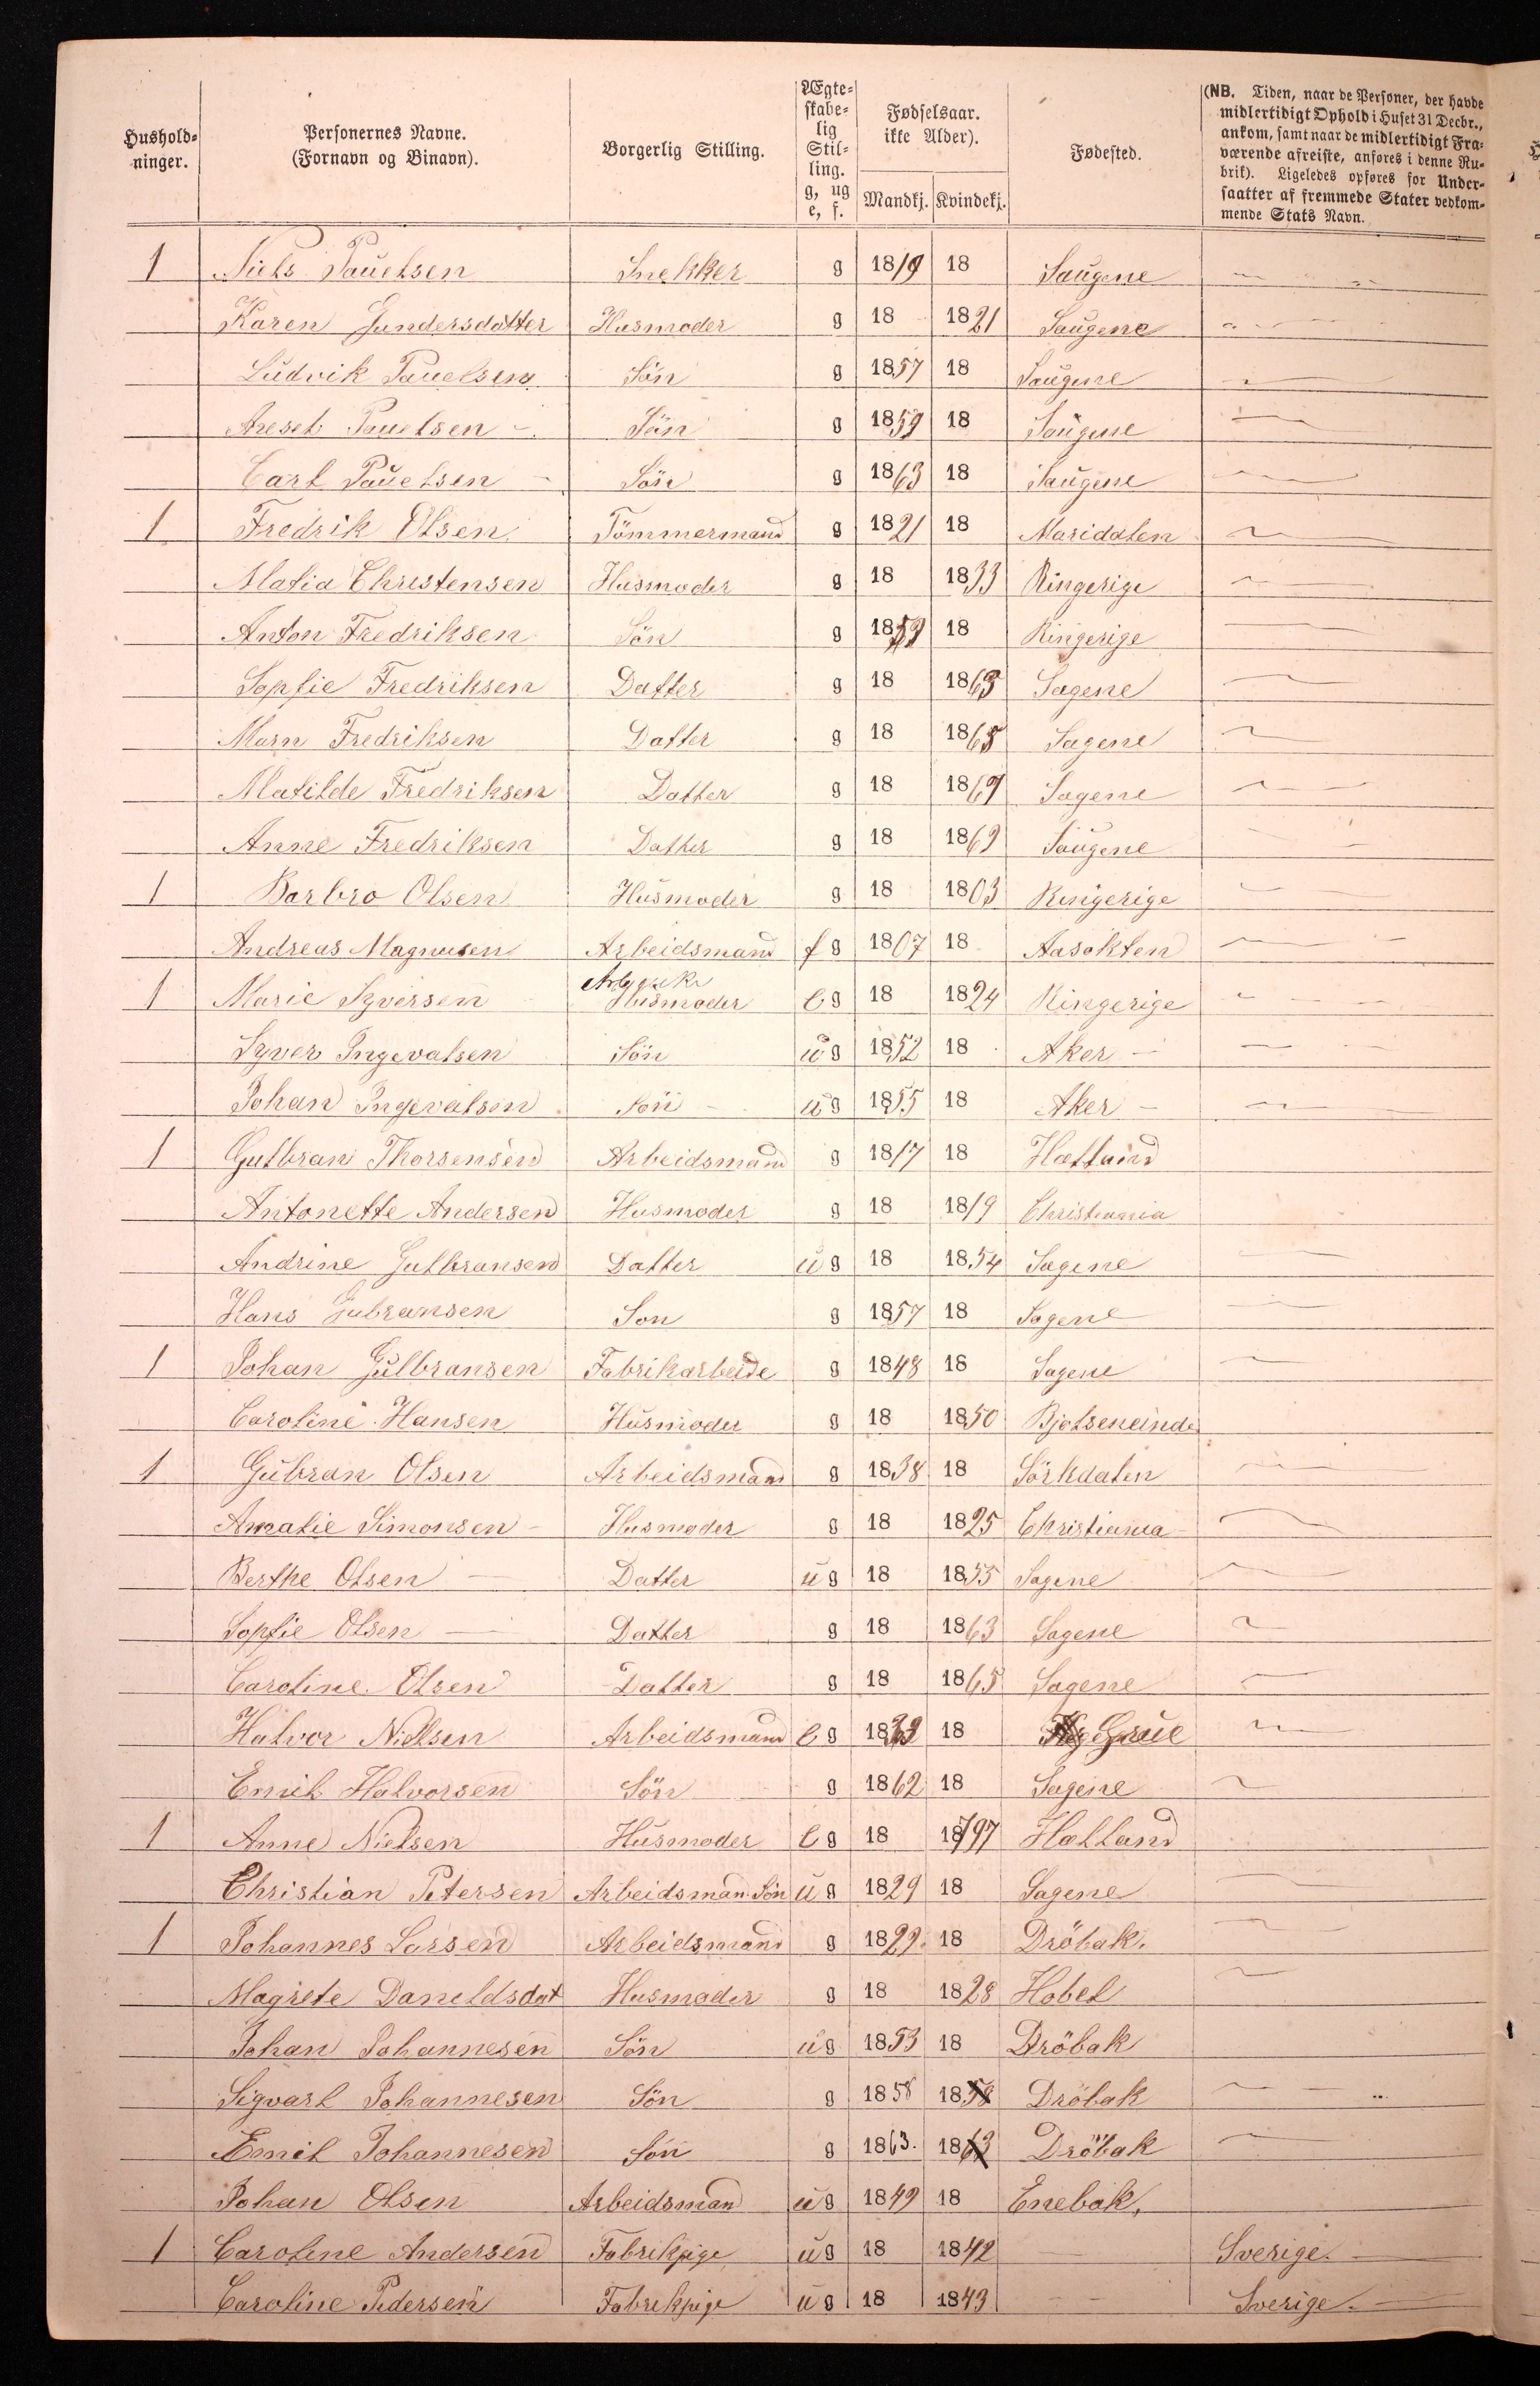 Hushold-ninger. Personernes Navne. (Fornavn og Binavn). Borgerlig Stilling. Ægte-skabe-lig Stil-ling. g, ug e, f. Fødselsaar. ikke Alder). Mandkj. Kvindekj. Fødested. (NB. Tiden, naar de Personer, der havde midlertidigt Ophold i Huset 31 Decbr., ankom, samt naar de midlertidigt Fra-værende afreiste, anføres i denne Ru-brik). Ligeledes opføres for Under-saatter af fremmede Stater vedkom-mende Stats Navn.
1 Niels Pauelsen Snekker g 1819 18 Saugene
Karen Gundersdatter Husmoder g 18 1821 Saugene
Ludvik Pauelsen Sön g 1857 18 Saugene
Axesel Pauelsen Sön g 1859 18 Saugene
Carl Pauelsen Sön g 1863 18 Saugene
1 Fredrik Olsen Tömmermand g 1821 18 Maridalen
Matia Christensen Husmoder g 18 1833 Ringerige
Anton Fredriksen Sön g 1859 18 Ringerige
Sopfie Fredriksen Datter g 18 1863 Sagene
Marn Fredriksen Datter g 18 1865 Sagene
Matilde Fredriksen Datter g 18 1867 Sagene
Anne Fredriksen Datter g 18 1869 Saugene
1 Barbro Olsen Husmoder g 18 1803 Ringerige
Andreas Magnusen Arbeidsmand f g 1807 18 Aasoklen
1 Marie Syversen Husmoder e g 18 1824 Ringerige
Syver Ingevalsen Sön u g 1852 18 Aker
Johan Ingevalsen Sön u g 1855 18 Aker
1 Gulbran Thorsensen Arbeidsmand g 1817 18 Hattland
Antonette Andersen Husmoder g 18 1819 Christiania
Andrine Gulbransen Datter u g 18 1854 Sagene
Hans Gubransen Son g 1857 18 Sagene
1 Johan Gulbransen Fabrikarbeide g 1848 18 Sagene
Caroline Hansen Husmoder g 18 1850
1 Gubran Olsen Arbeidsmand g 1838 18 Sörkdalen
Amalie Simonsen Husmoder g 18 1825 Christiania
Berthe Olsen Datter u g 18 1855 Sagene
Sopfie Olsen Datter g 18 1863 Sagene
Caroline Olsen Datter g 18 1865 Sagene
Halvor Nielsen Arbeidsmand e g 18 18 Grue
Emil Halvorsen Sön g 1862 18 Sagene
1 Anne Nielsen Husmoder e g 18 1797 Hatland
Christian Petersen Arbeidsman Sön u g 1829 18 Sagene
1 Johannes Larsen Arbeidsmand g 1829 18 Dröbak.
Magrete Daneldsdat Husmoder g 18 1828 Hobel
Johan Johannesen Sön u g 1853 18 Dröbak
Sigvart Johannesen Sön g 1858 1858 Dröbak
Emil Johannesen Sön g 1863. 1863 Dröbak
Johan Olsen Arbeidsmand u g 1849 18 Enebak,
1 Caroline Andersen Fabrikpige u g 18 1842 Sverige.
Caroline Pedersen Fabrekpige u g 18 1843 Sverige.